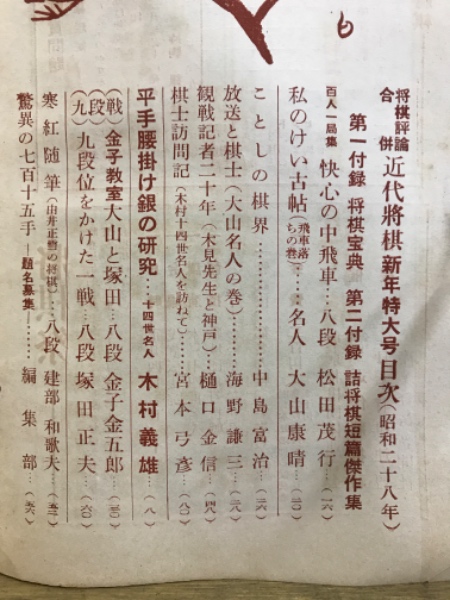 将棋評論合併 近代将棋 新年特大号目次(昭和二十八年)
第一付録 将棋宝典 第二付録 詰将棋短篇傑作集
百人一局集 快心の中飛車…八段 松田茂行…(一六)
私のけい古帖(飛車落ちの巻)……名人 大山康晴…(二〇)
ことしの棋界……………中島富治…(二六)
放送と棋士(大山名人の巻)……海野謙三…(二八)
観戦記者二十年(木見先生と神戸)…樋口金信…(四八)
棋士訪問記(木村十四世名人を訪ねて)……宮本弓彦…(八〇)
平手腰掛け銀の研究…十四世名人 木村義雄…(八)
(九段戦) 金子教室 大山と塚田…八段 金子金五郎…(三〇)
九段位をかけた一戦…八段 塚田正夫…(六〇)
寒紅随筆(由井正雪の将棋)…八段 建部和歌夫…(五二)
驚異の七百十五手—題名募集—……編集部…(五六)